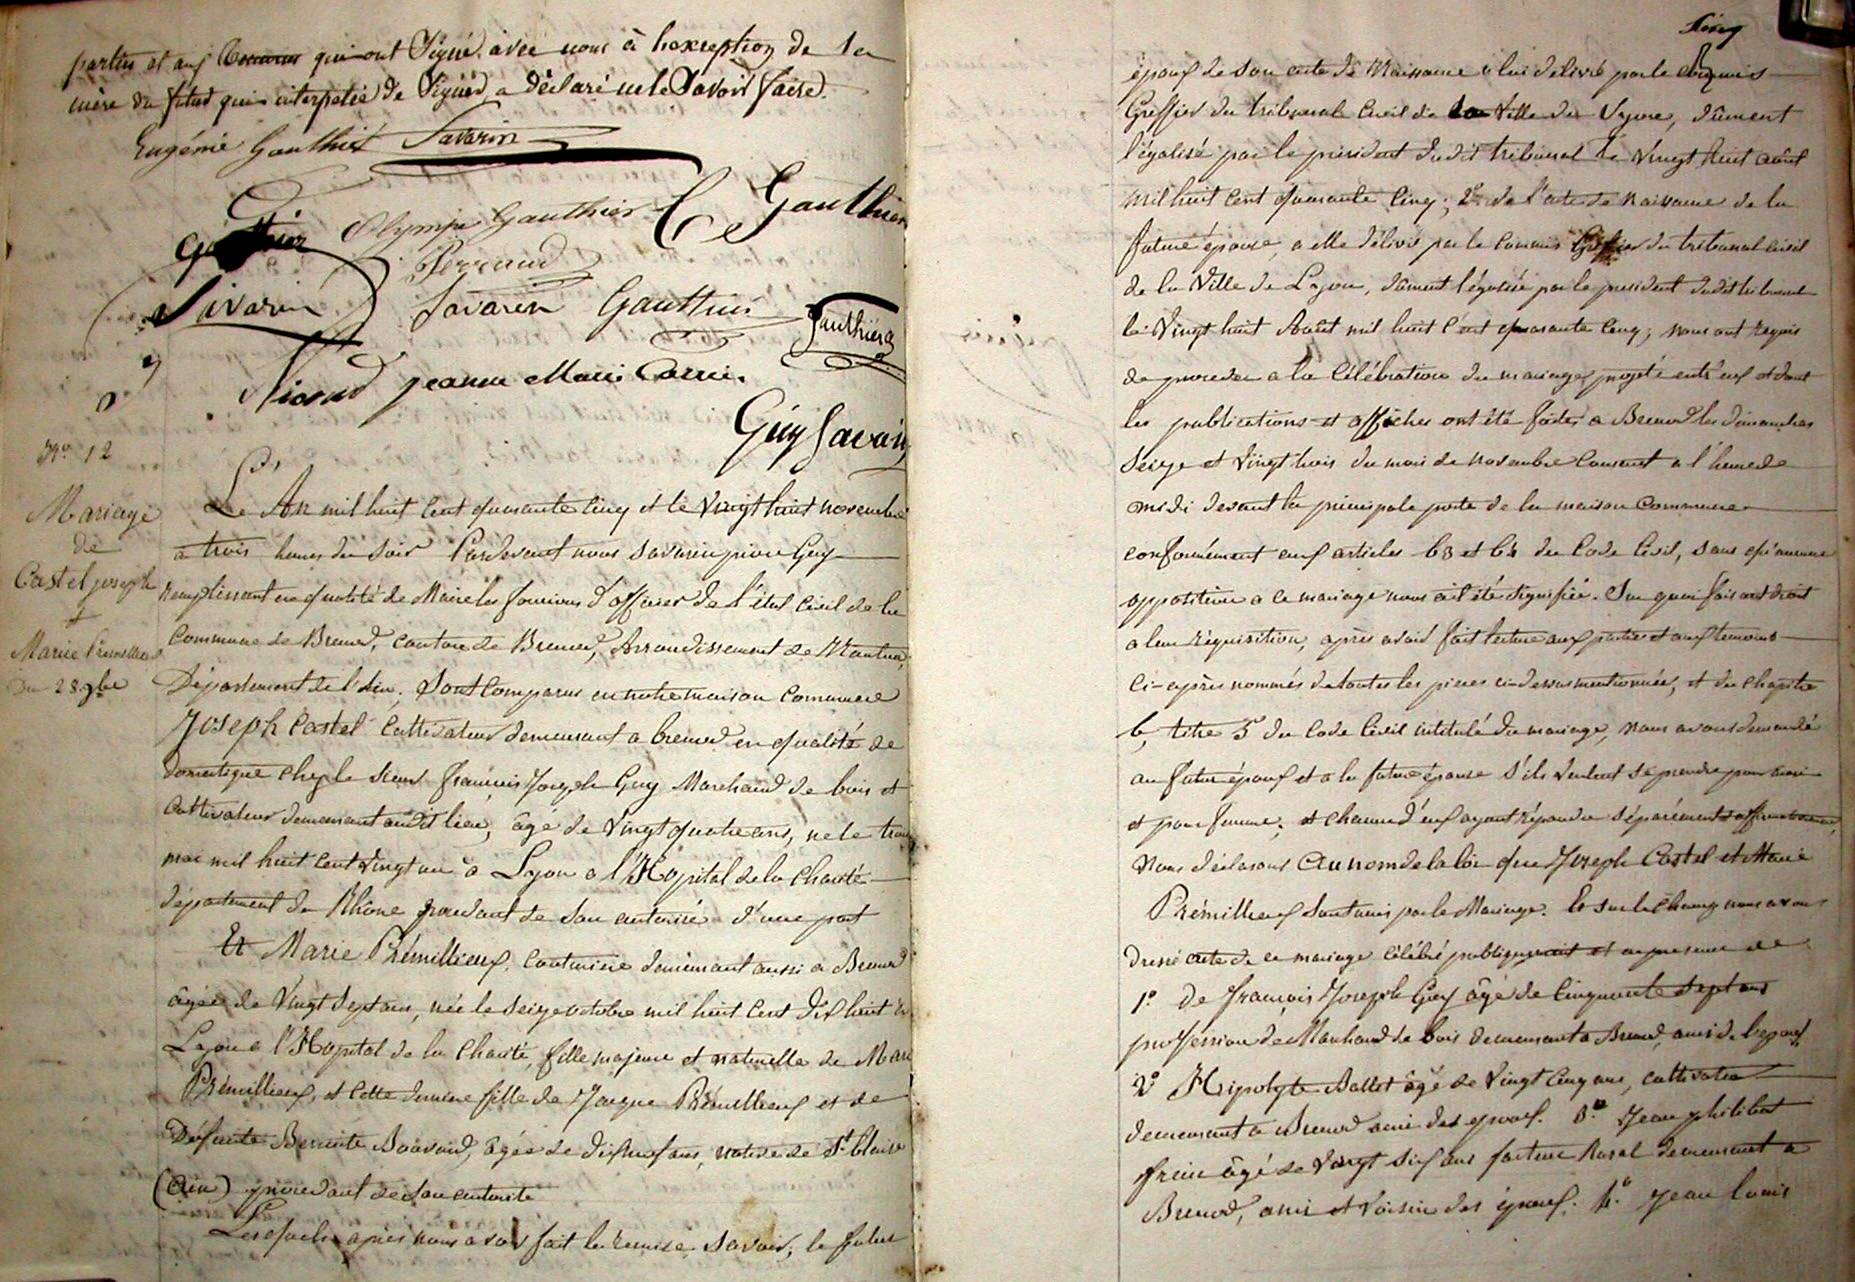 parties et aux témoins qui ont Signé avec nous à l'exception de la
mère du futur qui interpellé de Signer, a déclaré ne le Savoir faire.
Eugénie Gauthier Savarin
Gauthier Olympe Gauthier C Gauthier
Perraud
Savarin Savarin Gauthier Gauthier
Nicoud jeanne Marie Carrie.
Guy Savarin
N° 12
Mariage
de
Castel joseph
et
Marie Prémillieux
Du 28 9bre
L'An mil huit cent quarante cinq et le vingt huit novembre
a trois heures du soir Pardevant nous Savarin pierre Guy
remplissant en qualité de Maire les fonctions d'officier de l'état Civil de la
Commune de Brenod, canton de Brenod, Arrondissement de Nantua,
Département de l'Ain; Sont Comparus en notre maison Commune
Joseph Castel Cultivateur demeurant a brenod en qualité de
domestique chez le Sieur françois Joseph Guy Marchand de bois et
Cultivateur demeurant audit lieu, âgé de Vingt quatre ans, né le trois
mai mil huit cent vingt un à Lyon a l'Hopital de la Charité
département du Rhône procédant de son autorité d'une part
Et Marie Prémillieux, Couturière demeurant aussi a Brenod
âgée de Vingt Sept ans, née le Seize octobre mil huit Cent dix huit à
Lyon a l'Hopital de la Charité, fille majeure et naturelle de Marie
Prémillieux, et cette dernière fille de Jacque Prémillieux et de
Défunte Benoite Bouvard, âgée de dix neuf ans, native de St blaise
(Ain) procédant de Son autorité
Lesquels après nous avoir fait la remise Savoir, le futur
Cinq
époux de son acte de Naissance à lui délivré par le Commis
Greffier du tribunal Civil de la Ville de Lyon, dûment
légalisé par le président dudit tribunal le Vingt huit août
mil huit cent quarante cinq; 2° de l'acte de naissance de la
future épouse, a elle délivré par le Commis Greffier du tribunal civil
de la Ville de Lyon, dûment légalisé par le président dudit tribunal
le Vingt huit Août mil huit Cent quarante Cinq; nous ont requis
de procéder a la Célébration du mariage projeté entr'eux et dont
les publications et affiches ont été faites a Brenod les dimanches
Seize et Vingt trois du mois de novembre Courant a l'heure de
midi devant la principale porte de la maison Commune
conformément aux articles 63 et 64 du Code Civil, sans qu'aucune
opposition a ce mariage nous ait été signifiée. Sur quoi faisant droit
a leur réquisition, après avoir fait lecture aux parties et aux temoins
Ci-après nommés de toutes les pieces ci-dessus mentionnées, et du chapitre
6, titre 5 du Code Civil intitulé du mariage, nous avons demandé
au futur époux et a la future épouse S'ils Veulent Se prendre pour mari
et pour femme; et chacun d'eux ayant répondu Séparément et affirmativement,
Nous déclarons au nom de la loi que Joseph Castel et Marie
Prémillieux Sont unis par le Mariage. Et sur le Champ nous avons
dressé acte de ce mariage célébré publiquement et en presence de
1° de françois Joseph Guy âgé de Cinquante Sept ans
profession de Marchand de bois demeurant a Brenod, ami de l'époux
2° Hipolyte Ballet âgé de Vingt Cinq ans, cultivateur
demeurant a Brenod ami des époux. 3° Jean philibert
âgé de Vingt Six ans facteur Rural demeurant a
Brenod, ami et Voisin des époux. 4° Jean louis